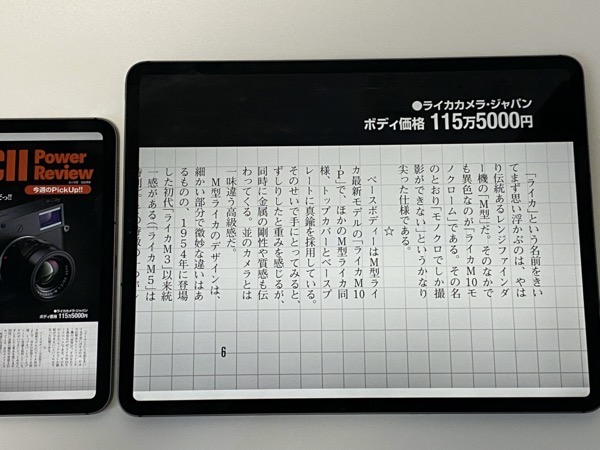 CII Power
Review
今週のPickUp!!
●ライカカメラ・ジャパン
ボディ価格 115万5000円
●ライカカメラ・ジャパン
ボディ価格 115万5000円
「ライカ」という名前をきい
てまず思い浮かぶのは、やは
り伝統あるレンジファインダ
ー機の「M型」だ。そのなかで
も異色なのが「ライカM10モ
ノクローム」である。その名
のとおり「モノクロでしか撮
影ができない」というかなり
尖った仕様である。
☆
ベースボディーはM型ライ
カ最新モデルの「ライカM10
P」で、ほかのM型ライカ同
様、トップカバーとベースプ
レートに真鍮を採用している。
そのせいで手にとってみると、
ずしりとした重みを感じるが、
同時に金属の剛性や質感も伝
わってくる。並のカメラとは
一味違う高級感だ。
M型ライカのデザインは、
細かい部分で微妙な違いはあ
るものの、1954年に登場
した初代「ライカM3」以来統
一感がある(「ライカM5」は
6